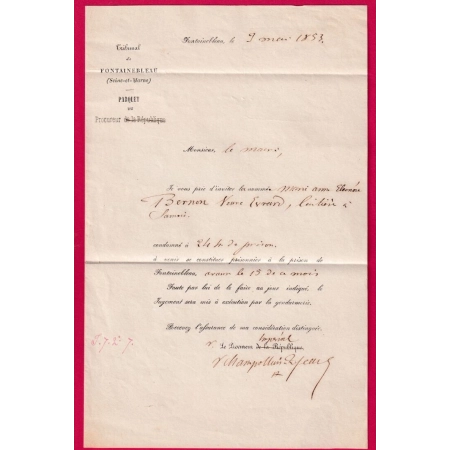 Fontainebleau, le 9 mai 1853.
Tribunal
de
FONTAINEBLEAU
(Seine-et-Marne)
PARQUET
DU
Procureur de la République
Monsieur le maire,
Je vous prie d'inviter la nommée marie anne
Bernon Veuve Evrard, à
Samois
condamné à 24 h de prison,
à venir se constituer prisonnière à la prison de
Fontainebleau, avant le 15 de ce mois
Faute par lui de le faire au jour indiqué, le
Jugement sera mis à exécution par la gendarmerie.
Recevez l'assurance de ma considération distinguée.
Impérial
Le Procureur de la République,